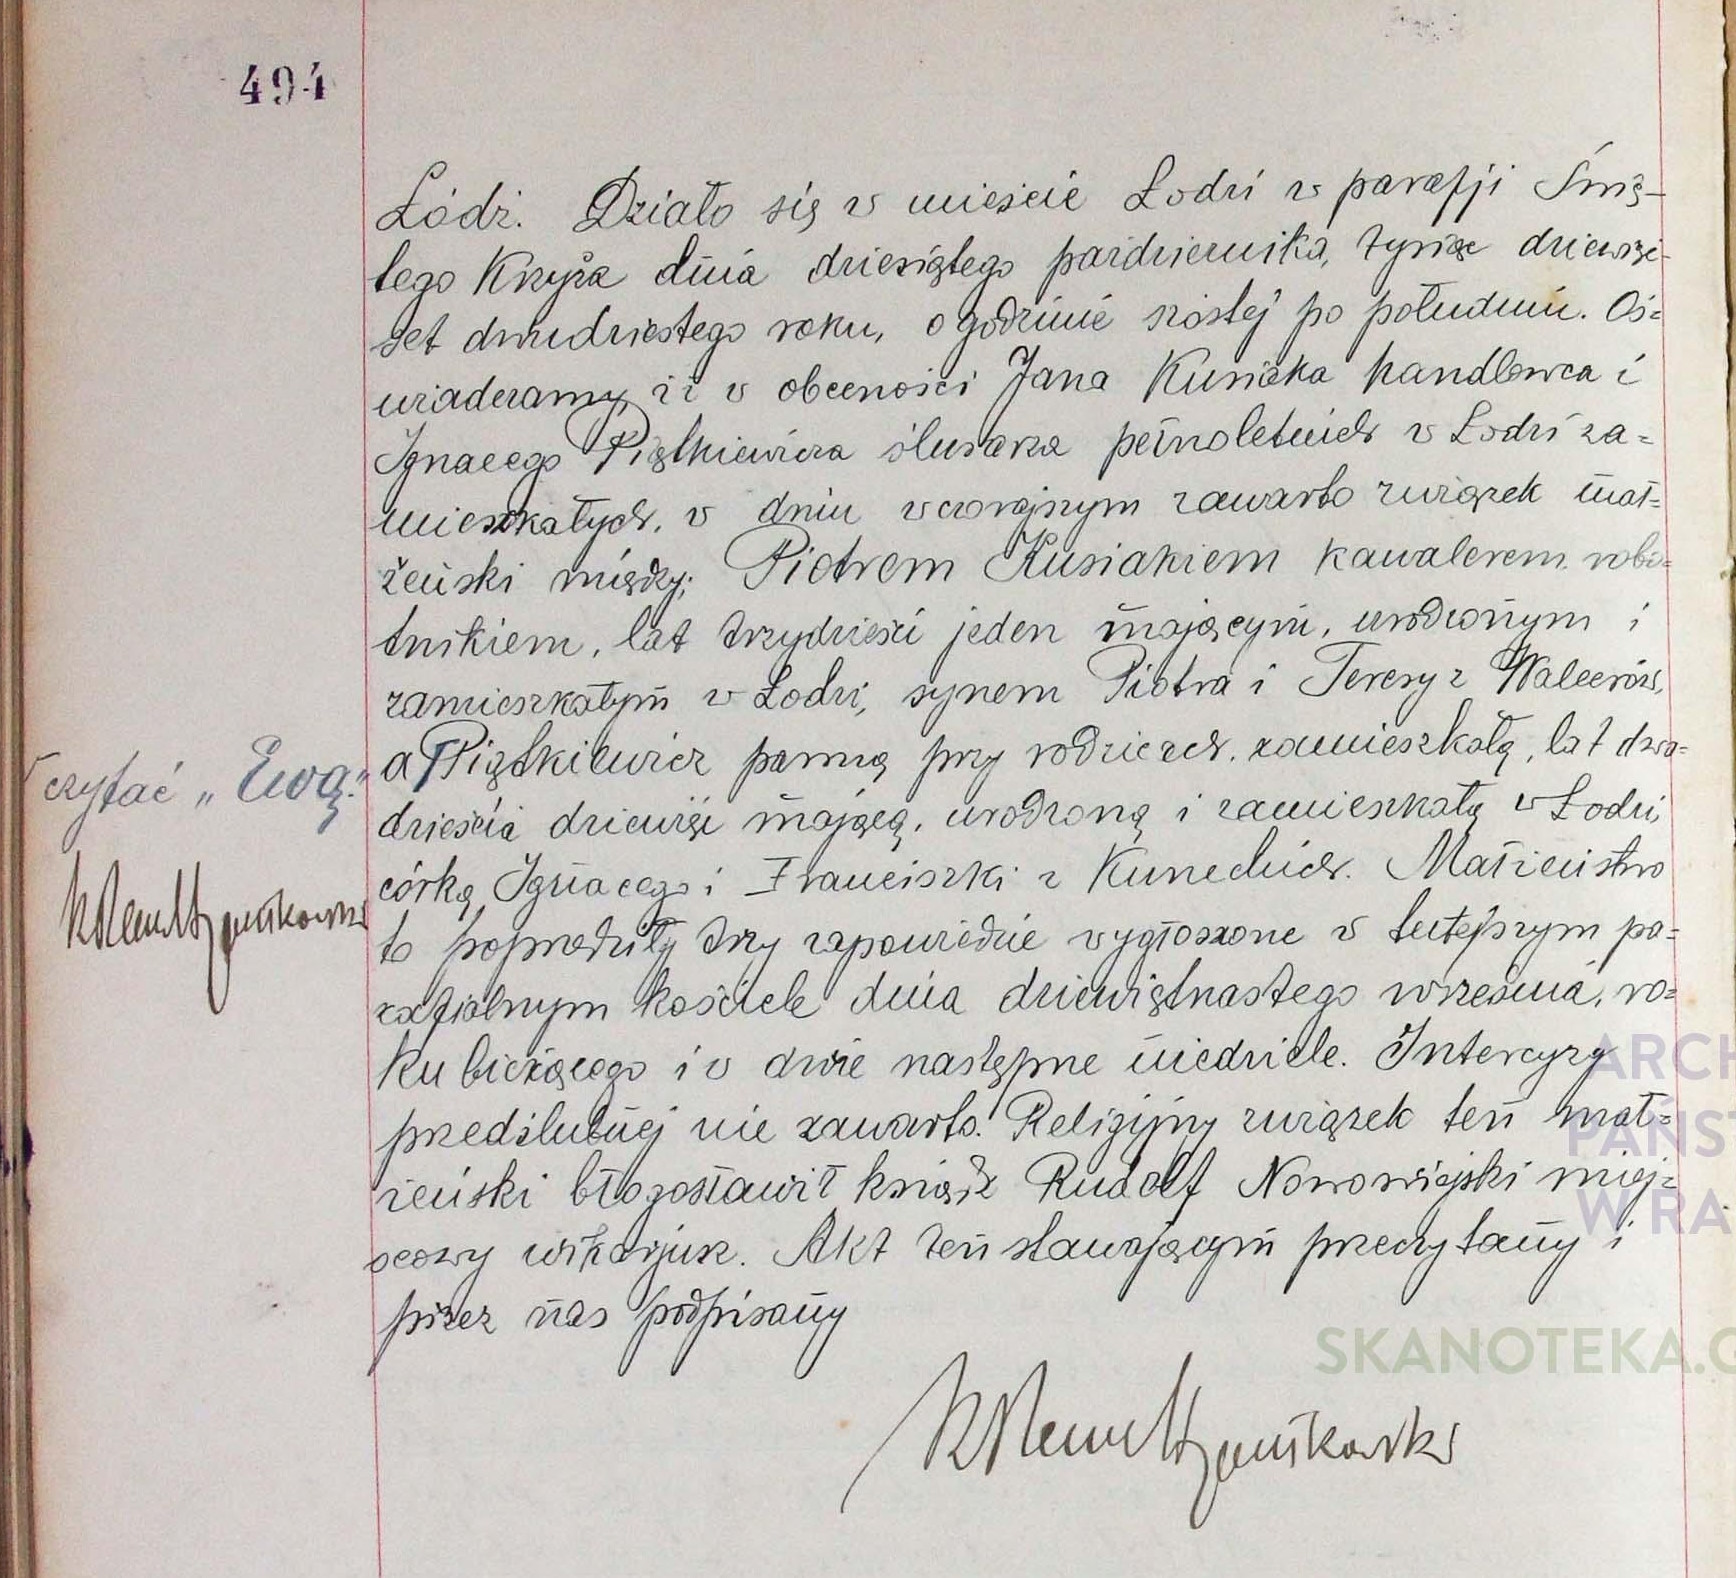 494
Łódź. Działo się w mieście Łodzi w parafji Świę-
tego Krzyża dnia dziesiątego października, tysiąc dziewięć-
set dwudziestego roku, o godzinie szóstej po południu. Oś=
wiadczamy, iż w obecności Jana Kusiaka handlowca i
Ignacego Piątkiewicza ślusarza pełnoletnich w Łodzi za=
mieszkałych, w dniu wczorajszym zawarto związek mał=
żeński między: Piotrem Kusiakiem kawalerem robo=
tnikiem, lat trzydzieści jeden mającym, urodzonym i
zamieszkałym w Łodzi, synem Piotra i Teresy z
a Piątkiewicz panną przy rodzicach zamieszkałą, lat dwa=
czytać „Ewą"
dzieścia dziewięć mającą, urodzoną i zamieszkałą w Łodzi,
córką Ignacego i Franciszki z Małżeństwo
to poprzedziły trzy zapowiedzie wygłoszone w tutejszym pa=
rafialnym kościele dnia dziewiętnastego września, ro=
ku bieżącego i w dwie następne niedziele. Intercyzy
przedślubnej nie zawarto. Religijny związek ten mał=
żeński błogosławił ksiądz Rudolf Nowowiejski miej=
scowy wikarjusz. Akt ten stawającym przeczytany i
przez nas podpisany
ARCH
PAŃST
W RA
SKANOTEKA.G